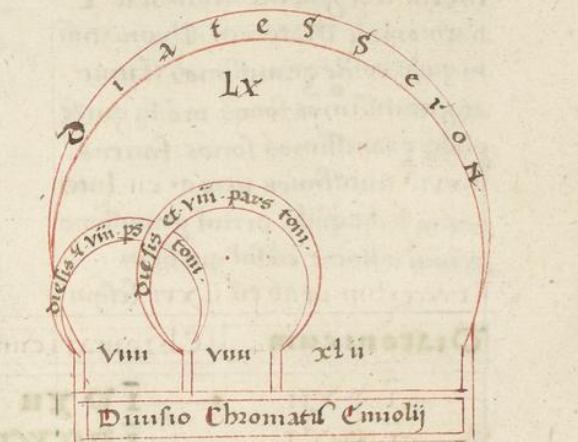 diatesseron
Lx
diesis & viii · ps toni ·
diesis et · viii · pars toni ·
Viiii viiii xlii
Diuisio Chromatis Emiolij